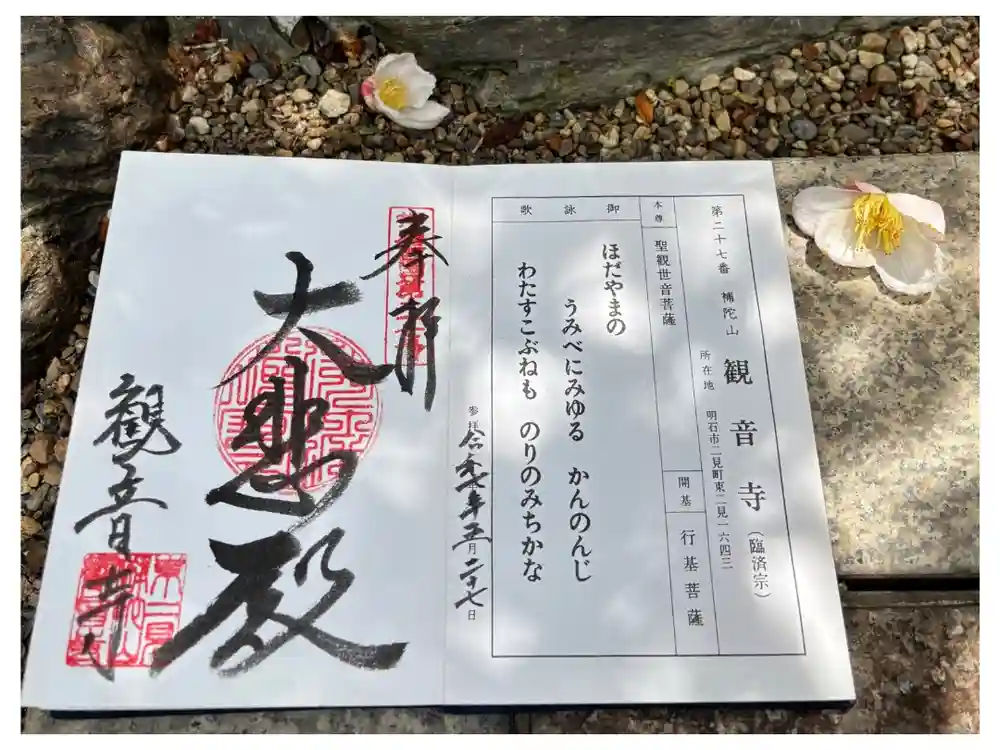 第二十七番 補陀山 観音寺(臨済宗)
所在地 明石市二見町東二見一六四三
本尊 聖観世音菩薩
開基 行基菩薩
御詠歌
ほだやまの
うみべにみゆる かんのんじ
わたすこぶねも のりのみちかな
参拝 令和七年三月二十七日
奉拝
大悲殿
観音寺